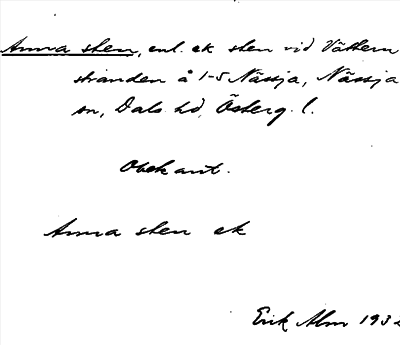 Anna sten, enl. ek sten vid Vättern
stranden å 1-5 Nässja, Nässja
sn, Dals hd, Österg. l.
Obekant.
Anna sten ek
Erik Alm 193